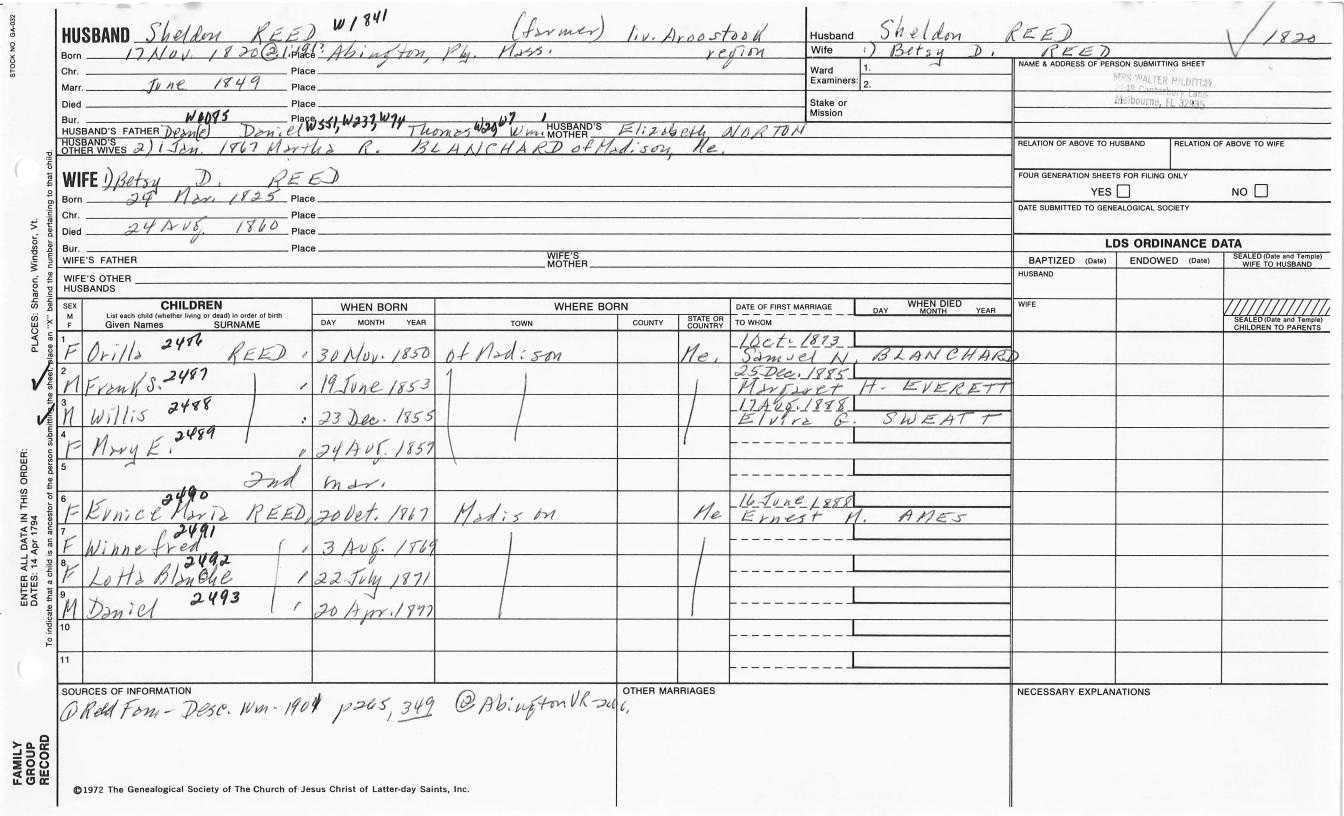 STOCK NO. GA-032
HUSBAND Sheldon REED W1841 (farmer) liv. Aroostook region
Born 17 Nov. 1820 Place Abington, Ply. Mass.
Chr. Place
Marr. June 1849 Place
Died Place
Bur. Place
HUSBAND'S FATHER Daniel W551, W237, W74 Thomas W29 W7 Wm. HUSBAND'S MOTHER Elizabeth NORTON
HUSBAND'S OTHER WIVES 2) 1 Jan. 1867 Martha R. BLANCHARD of Madison, Me.
WIFE 1) Betsy D. REED
Born 29 Mar. 1825 Place
Chr. Place
Died 24 Aug. 1860 Place
Bur. Place
WIFE'S FATHER WIFE'S MOTHER
WIFE'S OTHER HUSBANDS
Husband Sheldon REED 1820
Wife 1) Betsy D. REED
Ward Examiners: 1.
2.
Stake or Mission
NAME & ADDRESS OF PERSON SUBMITTING SHEET
MRS WALTER
Melbourne, FL 32935
RELATION OF ABOVE TO HUSBAND RELATION OF ABOVE TO WIFE
FOUR GENERATION SHEETS FOR FILING ONLY
YES NO
DATE SUBMITTED TO GENEALOGICAL SOCIETY
LDS ORDINANCE DATA
BAPTIZED (Date) ENDOWED (Date) SEALED (Date and Temple) WIFE TO HUSBAND
HUSBAND
WIFE
SEALED (Date and Temple) CHILDREN TO PARENTS
SEX M F
CHILDREN
List each child (whether living or dead) in order of birth
Given Names SURNAME
WHEN BORN
DAY MONTH YEAR
WHERE BORN
TOWN COUNTY STATE OR COUNTRY
DATE OF FIRST MARRIAGE
TO WHOM
WHEN DIED
DAY MONTH YEAR
1 F Orilla 2486 REED 30 Nov. 1850 of Madison Me. 1 Oct. 1873 Samuel N. BLANCHARD
2 M Frank S. 2487 19 June 1853 25 Dec. 1885 Margaret H. EVERETT
3 M Willis 2488 23 Dec. 1855 17 Aug. 1888 Elvira G. SWEATT
4 F Mary E. 2489 24 Aug. 1859
5 2nd mar.
6 F Eunice Maria 2490 REED 20 Oct. 1867 Madison Me 16 June 1888 Ernest M. AMES
7 F Winnefred 2491 3 Aug. 1869
8 F Lotta Blanche 2492 22 July 1871
9 M Daniel 2493 20 Apr. 1877
10
11
SOURCES OF INFORMATION
① Reed Fam - Desc. Wm - 1901 p265, 349 ② Abington VR-
OTHER MARRIAGES
NECESSARY EXPLANATIONS
©1972 The Genealogical Society of The Church of Jesus Christ of Latter-day Saints, Inc.
ENTER ALL DATA IN THIS ORDER:
DATES: 14 Apr 1794
PLACES: Sharon, Windsor, Vt.
To indicate that a child is an ancestor of the person submitting the sheet, place an "X" behind the number pertaining to that child.
FAMILY GROUP RECORD